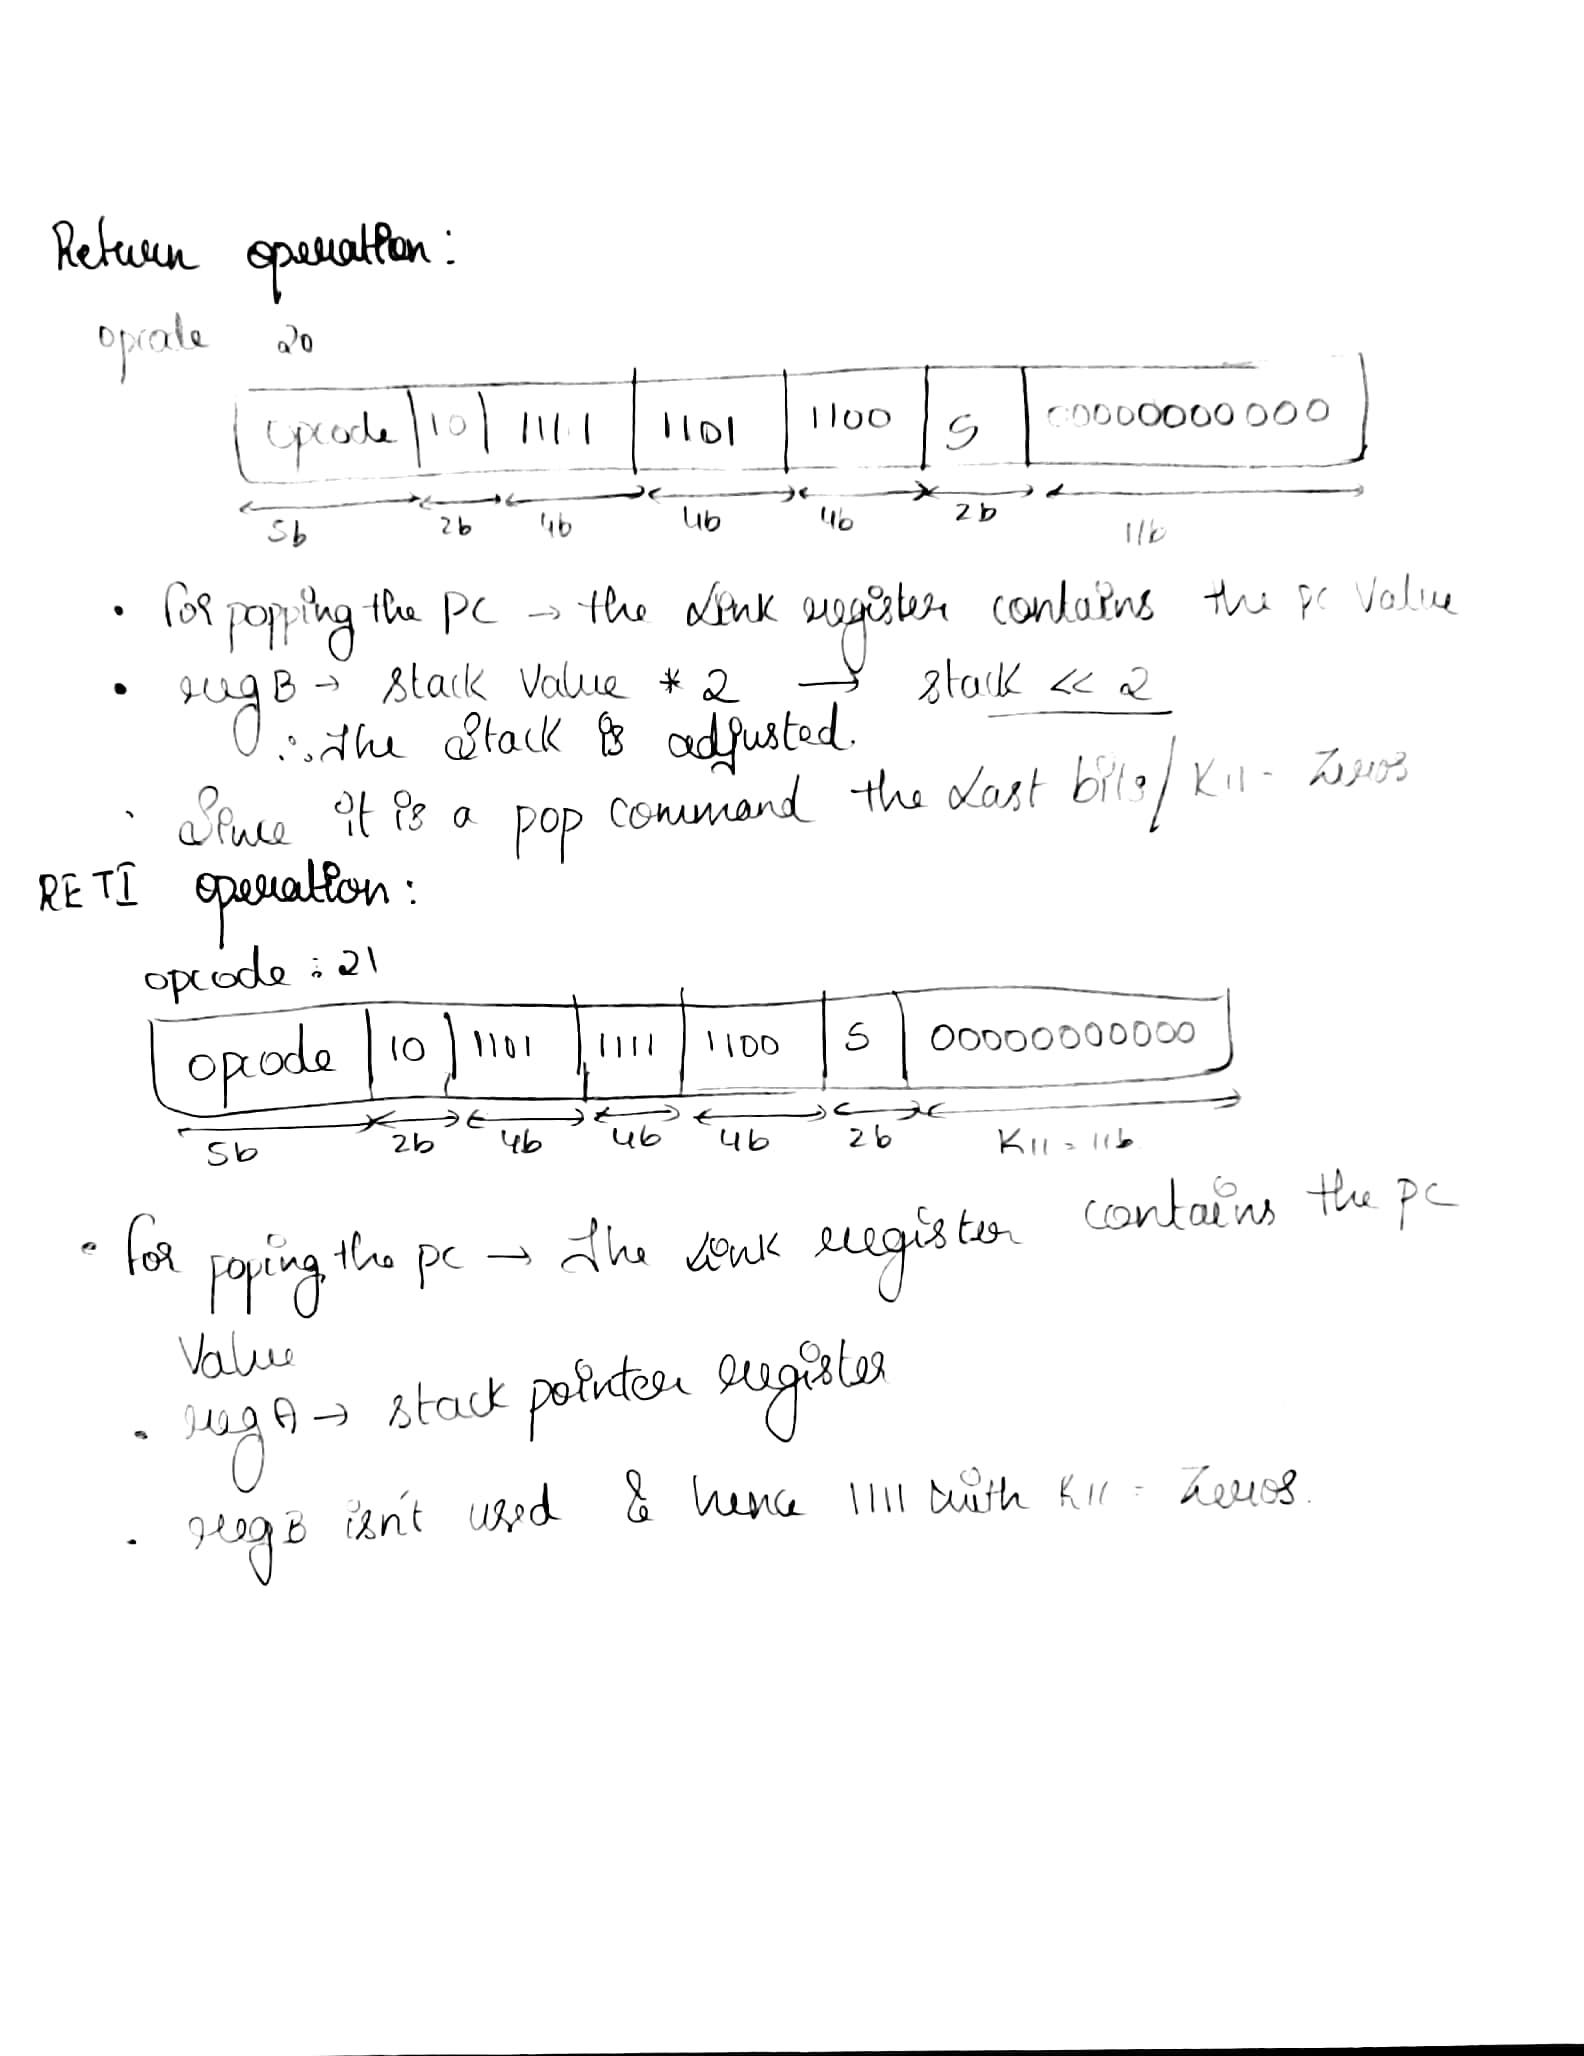 Return operation:
opcode 20
opcode 10 1111 1101 1100 S 00000000000
5b 2b 4b 4b 4b 2b 11b
• for popping the PC → the Link register contains the pc Value
• reg B → stack Value * 2 → stack << 2
∴ The Stack is adjusted.
• Since it is a pop command the Last bits/ K11 - Zeros
RETI operation:
opcode : 21
opcode 10 1101 1111 1100 S 00000000000
5b 2b 4b 4b 4b 2b K11 = 11b
• for poping the pc → The link register contains the pc
Value
• reg A → stack pointer register
• reg B isn't used & hence 1111 with K11 = Zeros.